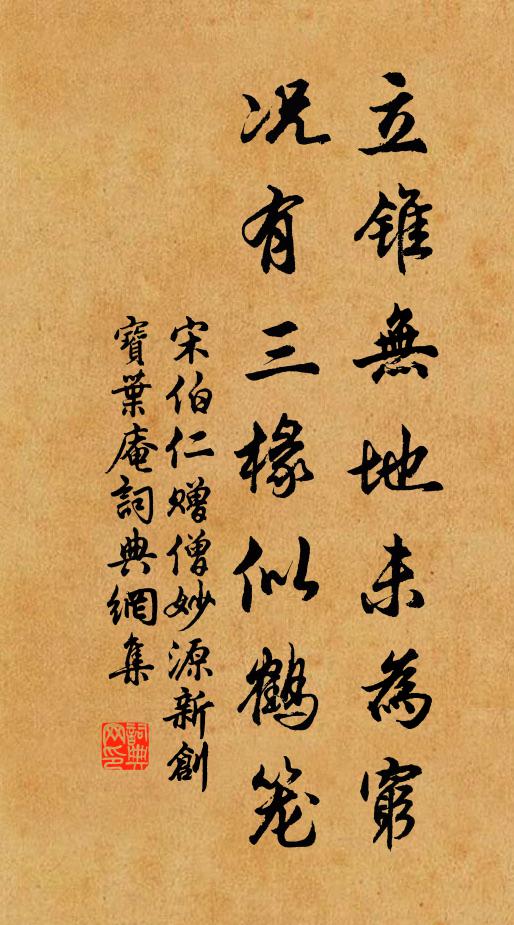 立錐無地未為窮
況有三椽似鶴笼
宋伯仁赠僧妙源新創
寶葉庵詞典網集
詞典网印